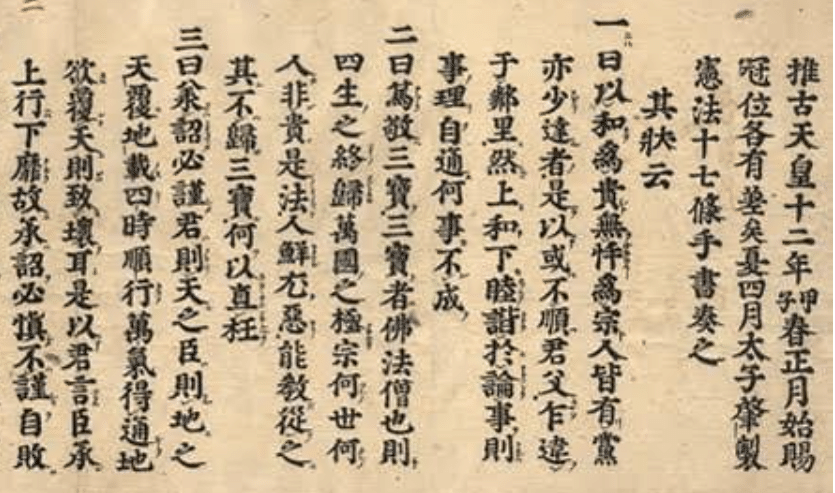 推古天皇十二年甲子春正月始賜
冠位各有差矣夏四月太子肇製
憲法十七條手書奏之
其狀云
一曰以和為貴無忤為宗人皆有黨
亦少達者是以或不順君父乍違
于鄰里然上和下睦諧於論事則
事理自通何事不成
二曰篤敬三寶三寶者佛法僧也則
四生之終歸萬國之極宗何世何
人非貴是法人鮮尤惡能教從之
其不歸三寶何以直枉
三曰承詔必謹君則天之臣則地之
天覆地載四時順行萬氣得通地
欲覆天則致壞耳是以君言臣承
上行下靡故承詔必慎不謹自敗